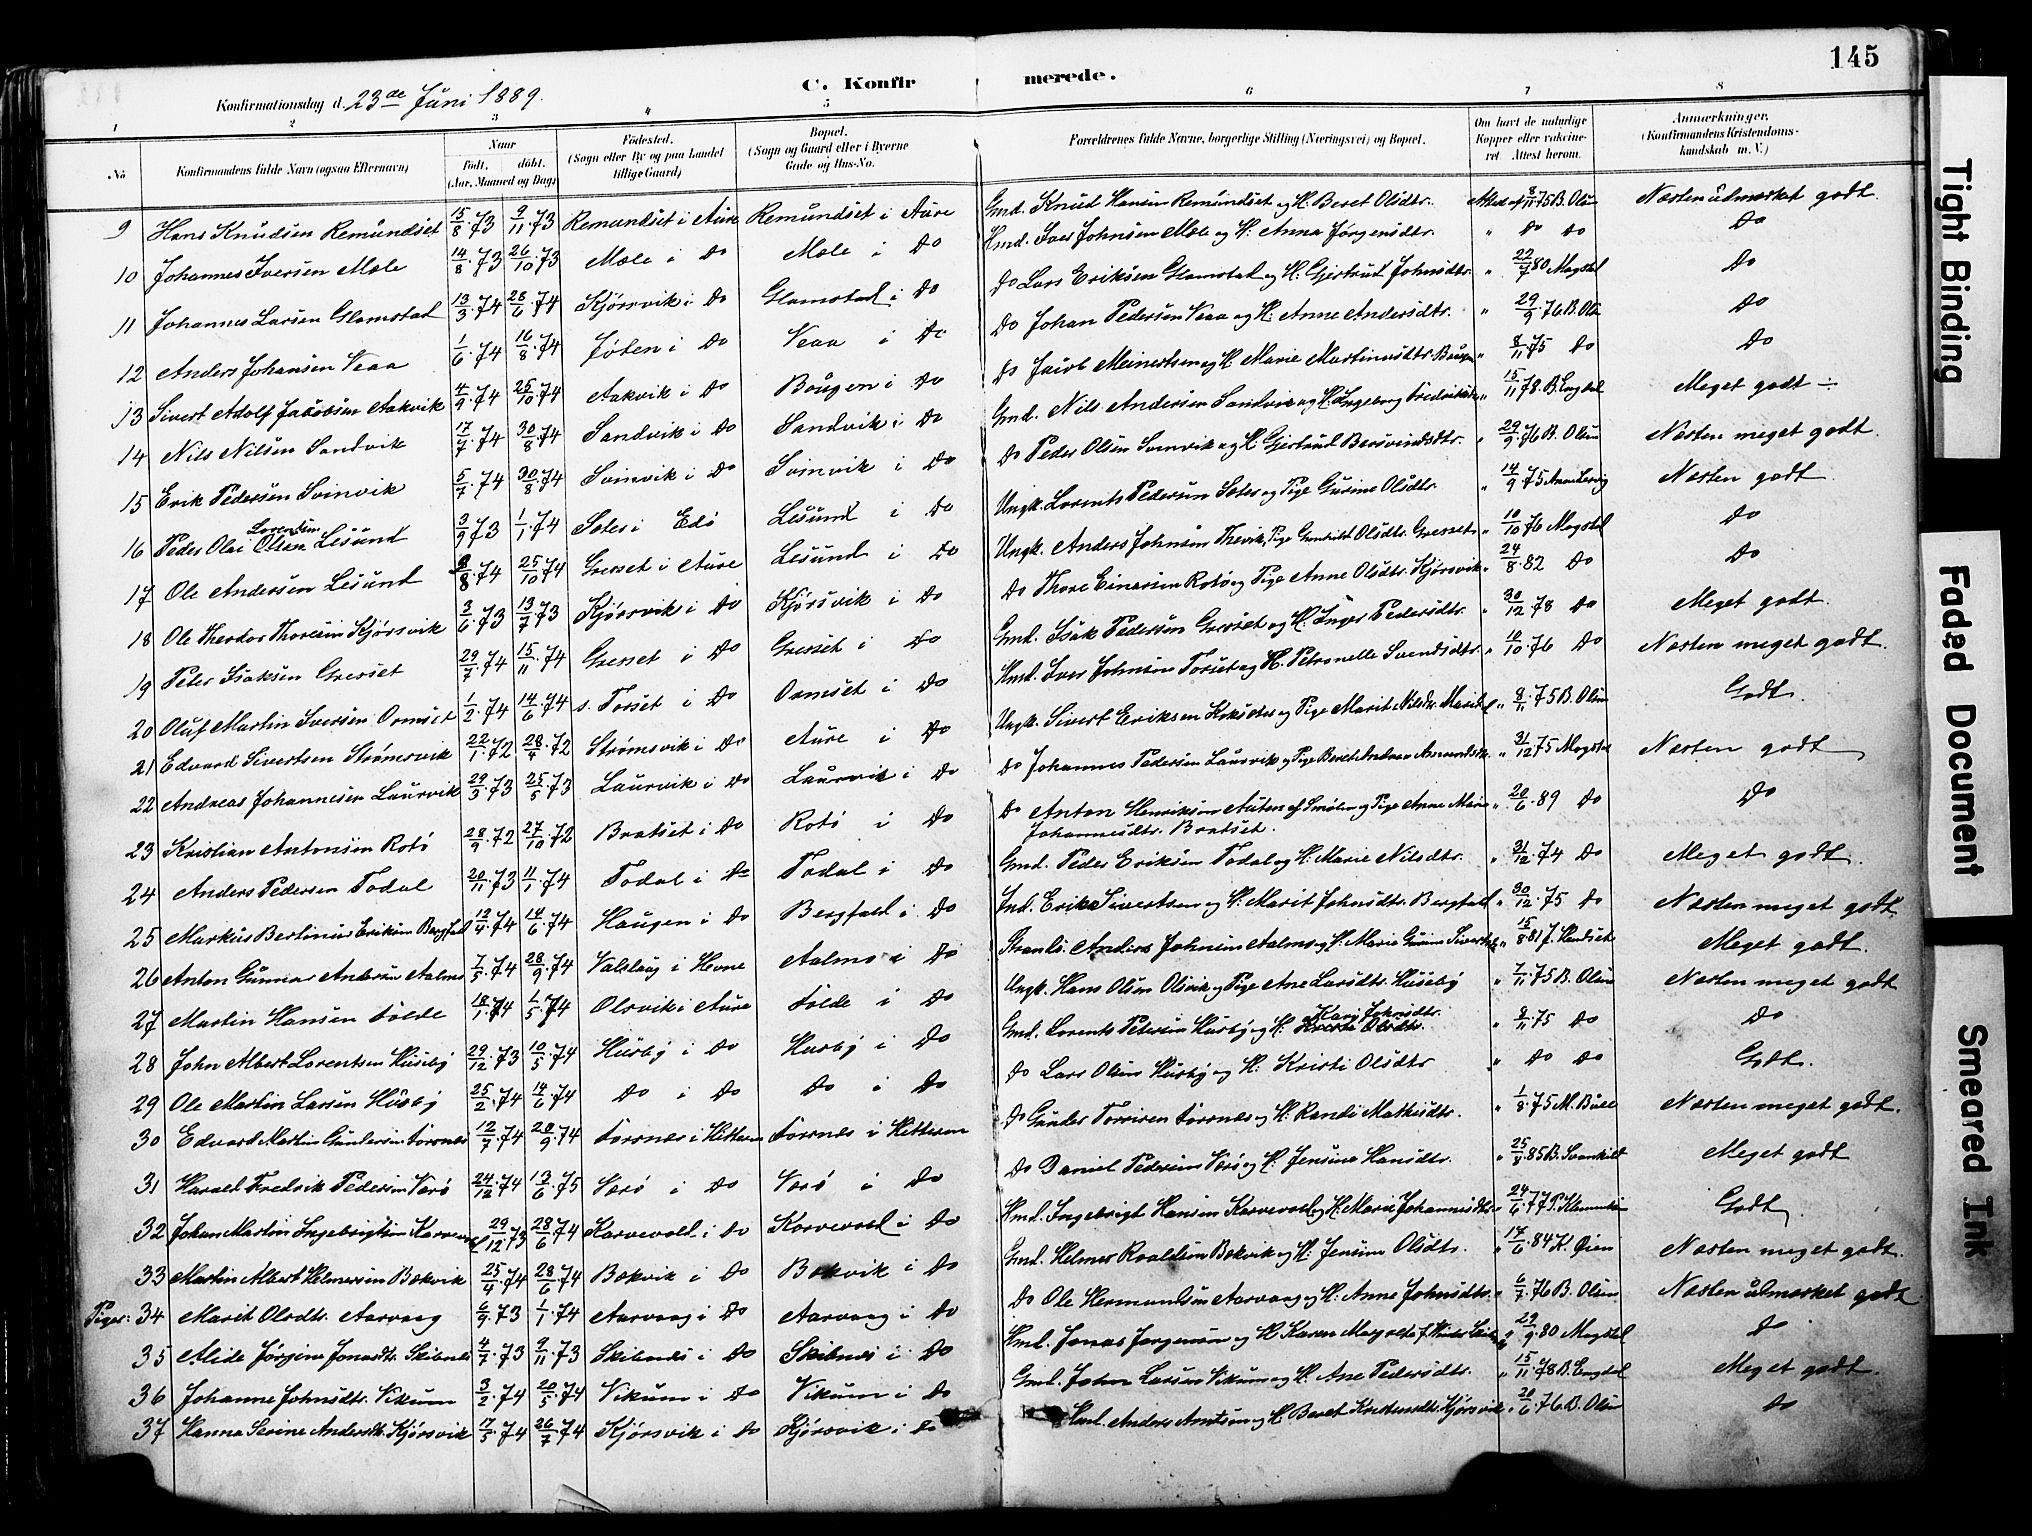 145
C. Konfirmerede.
Konfirmationsdag d. 23de Juni 1889.
1 2 3 4 5 6 7 8
No
Konfirmandens fulde Navn (ogsaa Efternavn)
Naar
født. døbt.
(Aar, Maaned og Dag)
Fødested.
(Sogn eller By og paa Landet
tillige Gaard)
Bopæl.
(Sogn og Gaard eller i Byerne
Gade og Hus-No.
Forældrenes fulde Navne, borgerlige Stilling (Næringsvei) og Bopæl.
Om havt de naturlige
Kopper eller vakcine-
ret Attest herom.
Anmærkninger.
(Konfirmandens Kristendoms-
kundskab m. V.)
9 Hans Knudsen Remundset 15/8 73 9/11 73 Remundset i Aure Remundset i Aure Gmd. Knud Hansen Remundset og H. Beret Olsdtr. Attest af 8/11 75 B. Olsen Næsten udmærket godt.
10 Johannes Iversen Mæle 14/8 73 26/10 73 Mæle i Do Mæle i Do Hmd. Iver Johnsen Mæle og H. Anna Jørgensdtr. " Do Do Do
11 Johannes Larsen Glamstad 13/3 74 28/6 74 Kjørsvik i Do Glamstad i Do Do Lars Eriksen Glamstad og H. Gjertrud Johnsdtr. " 22/7 80 Magstel Do
12 Anders Johansen Veaa 1/6 74 16/8 74 Jøten i Do Veaa i Do Do Johan Pedersen Veaa og H. Anne Andersdtr. " 29/9 76 B. Ols Do
13 Sivert Adolf Jakobsen Aakvik 4/9 74 25/10 74 Aakvik i Do Baugen i Do Do Jacob Meinertsen og H. Marie Martinusdtr. Baugen " 8/11 75 Do Do
14 Nils Nilsen Sandvik 17/7 74 30/8 74 Sandvik i Do Sandvik i Do Gmd. Nils Andersen Sandvik og H. Ingeborg Fredriksdtr " 15/11 78 B. Engdal Meget godt ÷
15 Erik Pedersen Svinvik 5/7 74 30/8 74 Svinvik i Do Svinvik i Do Do Peder Olsen Svinvik og H. Gjertrud Bersvendsdtr. " 29/9 76 B. Olsen Næsten meget godt.
16 Peder Olai Olsen Lorentsen Lesund 3/9 73 1/1 74 Soles i Edø Lesund i Do Ungk. Lorents Pedersen Soles og Pige Gurine Olsdtr. " 14/9 75 Næsten godt.
17 Ole Andersen Lesund 8/8 74 25/10 74 Gresset i Aure Lesund i Do Ungk. Anders Johnsen Thevik, Pige Gunhild Olsdtr. Gresset " 10/10 76 Magstel Do
18 Ole Theodor Thoresen Kjørsvik 3/6 73 13/7 73 Kjørsvik i Do Kjørsvik i Do Do Thore Einersen Rotø og Pige Anne Olsdtr. Kjørsvik " 24/8 82 Do Do
19 Peter Isaksen Gresset 29/7 74 15/11 74 Gresset i Do Gresset i Do Gmd. Isak Pedersen Gresset og H. Inger Pedersdtr. " 30/12 78 Do Meget godt.
20 Oluf Martin Iversen Ormset 1/2 74 14/6 74 s. Torset i Do Ormset i Do Hmd. Iver Johnsen Torset og H. Petronelle Svendsdtr. " 10/10 76 Do Næsten meget godt.
21 Edvard Sivertsen Strømsvik 22/1 72 28/4 72 Strømsvik i Do Aure i Do Ungk. Sivert Eriksen og Pige Marit Nilsdtr. " 8/11 75 B. Olsen Godt
22 Andreas Johannesen Laurvik 29/3 73 25/5 73 Laurvik i Do Laurvik i Do Do Johannes Pedersen Laurvik og Pige Beret " 31/12 75 Magstel Næsten godt
23 Kristian Antonsen Rotø 28/9 72 27/10 72 Bratset i Do Rotø i Do Do Anton Henriksen af Smølen og Pige Anne Marie
Johannesdtr. Bratset. " 20/6 89 Do Do
24 Anders Pedersen Todal 20/11 73 11/1 74 Todal i Do Todal i Do Gmd. Peder Eriksen Todal og H. Marie Nilsdtr. " 31/12 74 Do Meget godt.
25 Markus Bertinus Eriksen Bergfald 12/4 74 14/6 74 Haugen i Do Bergfald i Do Ind. Erik Sivertsen og H. Marit Johnsdtr. Bergfald " 30/12 75 Do Næsten meget godt
26 Anton Gunnar Andersen Aalmo 7/5 74 28/9 74 Valslaug i Hevne Aalmo i Do Anders Johnsen Aalmo og H. Marie " 15/8 81 J. Meget godt.
27 Martin Hansen Folde 18/1 74 1/5 74 Olsvik i Aure Folde i Do Ungk. Hans Olsen Olsvik og Pige Ane Larsdtr. Huseby " 7/11 75 B. Olsen Næsten meget godt
28 John Albert Lorentsen Huseby 29/12 73 10/5 74 Husby i Do Husby i Do Gmd. Lorents Petersen Husby og H. Kristi Olsdtr. Kari Johnsdtr. " 8/11 75 Do Do
29 Ole Martin Larsen Husby 25/2 74 14/6 74 Do i Do Do i Do Do Lars Olsen Husby og H. Kristi Olsdtr " Do Do Godt.
30 Edvard Martin Gundersen Forsnes 12/7 74 20/9 74 Forsnes i Hitteren Forsnes i Hitteren Do Gunder Torrisen Forsnes og H. Randi Mathisdtr. " 1/8 75 M. Bull Næsten meget godt.
31 Harald Fredrik Pedersen Værø 24/12 74 13/6 75 Værø i Do Værø i Do Do Daniel Pedersen Værø og H. Jensine Hansdtr. " 25/8 85 B. Svanhild Meget godt
32 Johan Martin Ingebrigtsen Korsvold 29/12 73 28/6 74 Korsvold i Do Korsvold i Do Hmd. Ingebrigt Hansen Korsvold og H. Marie Johannesdtr. " 24/6 77 P. Godt
33 Martin Albert Helmersen Bækvik 25/4 74 28/6 74 Bækvik i Do Bækvik i Do Gmd. Helmer Roaldsen Bækvik og H. Jensine Olsdtr. " 17/6 84 K. Øien Næsten meget godt.
Piger: 34 Marit Olsdtr. Aarvaag 6/9 73 1/1 74 Aarvaag i Do Aarvaag i Do Do Ole Hermundsen Aarvaag og H. Anne Johnsdtr. " 6/7 76 B. Olsen Næsten udmærket godt.
35 Alide Jørgine Jonasdtr. Skibnes 4/7 73 9/11 73 Skibnes i Do Skibnes i Do Hmd. Jonas Jørgensen og H. Karen " 29/9 80 Magstel Do
36 Johanne Johnsdtr. Vikum 3/2 74 20/5 74 Vikum i Do Vikum i Do Gmd. John Larsen Vikum og H. Ane Pedersdtr. " 15/11 78 B. Engdal Meget godt.
37 Hanna Serine Andersdtr. Kjørsvik 17/5 74 26/7 74 Kjørsvik i Do Kjørsvik i Do Hmd. Anders Arntsen og H. Beret Kristensdtr. Kjørsvik " 20/6 76 B. Olsen Do
Tight Binding
Faded Document
Smeared Ink